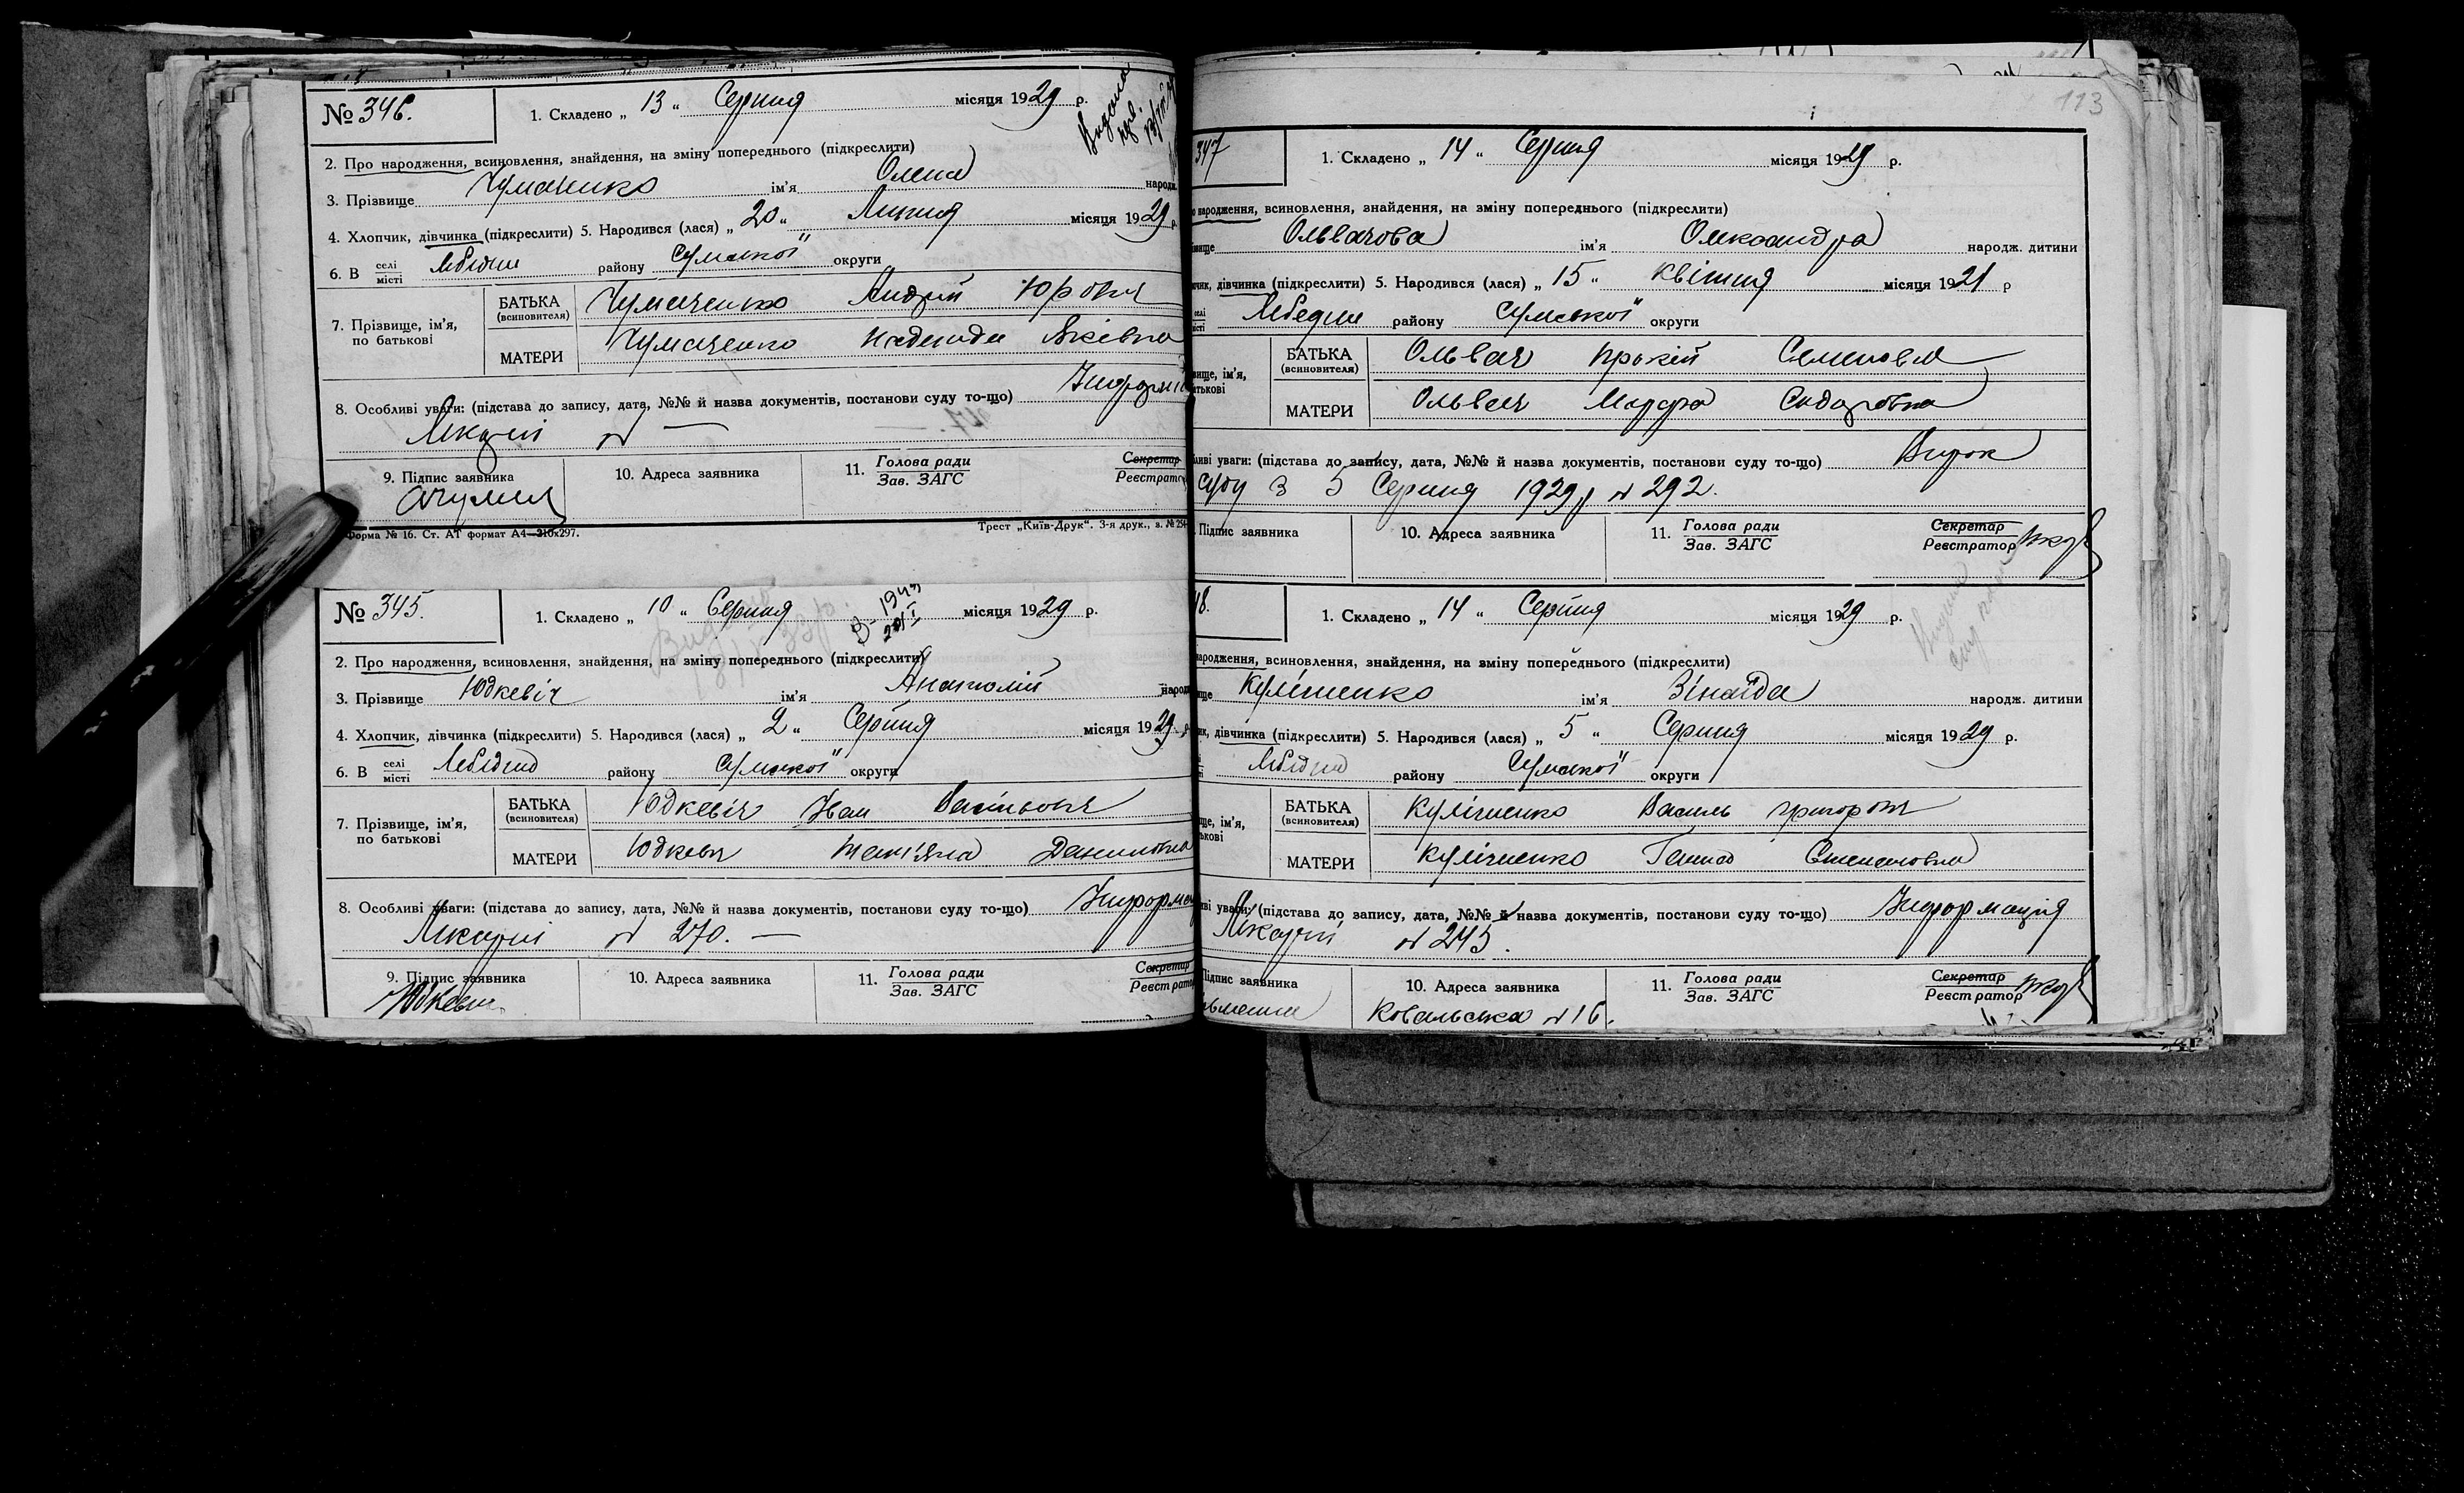 № 346.
1. Складено „ 13 “ Серпня місяця 1929 р.
Видана
2. Про народження, всиновлення, знайдення, на зміну попереднього (підкреслити)
3. Прізвище Чумаченко ім'я Олена народж.
4. Хлопчик, дівчинка (підкреслити) 5. Народився (лася) „ 20 “ Липня місяця 1929 р.
6. В селі місті Лебідин району Сумської округи
7. Прізвище, ім'я, по батькові
БАТЬКА (всиновителя) Чумаченко Андрій Юрович
МАТЕРИ Чумаченко Надежда Яківна
8. Особливі уваги: (підстава до запису, дата, №№ й назва документів, постанови суду то-що)
Лікарні № —
9. Підпис заявника 10. Адреса заявника 11. Голова ради Зав. ЗАГС Секретар Реєстратор
Форма № 16. Ст. АТ формат А4—210х297.
Трест „Київ-Друк“. 3-я друк., з. № 254
№ 345.
1. Складено „ 10 “ Серпня місяця 1929 р.
1943
2. Про народження, всиновлення, знайдення, на зміну попереднього (підкреслити)
3. Прізвище Юдкевіч ім'я Анатолій народж.
4. Хлопчик, дівчинка (підкреслити) 5. Народився (лася) „ 2 “ Серпня місяця 1929 р.
6. В селі місті Лебідині району Сумської округи
7. Прізвище, ім'я, по батькові
БАТЬКА (всиновителя) Юдкевіч Іван Васільович
МАТЕРИ Юдкевич Тат'яна Даниловна
8. Особливі уваги: (підстава до запису, дата, №№ й назва документів, постанови суду то-що)
Лікарні № 270. —
9. Підпис заявника 10. Адреса заявника 11. Голова ради Зав. ЗАГС Секретар Реєстратор
Юдкевич
113
347
1. Складено „ 14 “ Серпня місяця 1929 р.
народження, всиновлення, знайдення, на зміну попереднього (підкреслити)
Ольвачова ім'я Олександра народж. дитини
дівчинка (підкреслити) 5. Народився (лася) „ 15 “ Квітня місяця 1921 р
селі місті Лебедин району Сумської округи
ім'я,
БАТЬКА (всиновителя) Ольвач Прокій Семенович
МАТЕРИ Ольвач Марфа Сидоровна
уваги: (підстава до запису, дата, №№ й назва документів, постанови суду то-що) Вирок
суду з 5 Серпня 1929 р № 292.
Підпис заявника 10. Адреса заявника 11. Голова ради Зав. ЗАГС Секретар Реєстратор
48.
1. Складено „ 14 “ Серпня місяця 1929 р.
народження, всиновлення, знайдення, на зміну попереднього (підкреслити)
Кулішенко ім'я Зінаїда народж. дитини
дівчинка (підкреслити) 5. Народився (лася) „ 5 “ Серпня місяця 1929 р.
Лебідині району Сумської округи
ім'я,
БАТЬКА (всиновителя) Кулішенко Василь Григорович
МАТЕРИ Кулішенко Ганна Степановна
уваги: (підстава до запису, дата, №№ й назва документів, постанови суду то-що) Информація
Лікарні № 245.
Підпис заявника 10. Адреса заявника 11. Голова ради Зав. ЗАГС Секретар Реєстратор
Ковальська № 16.